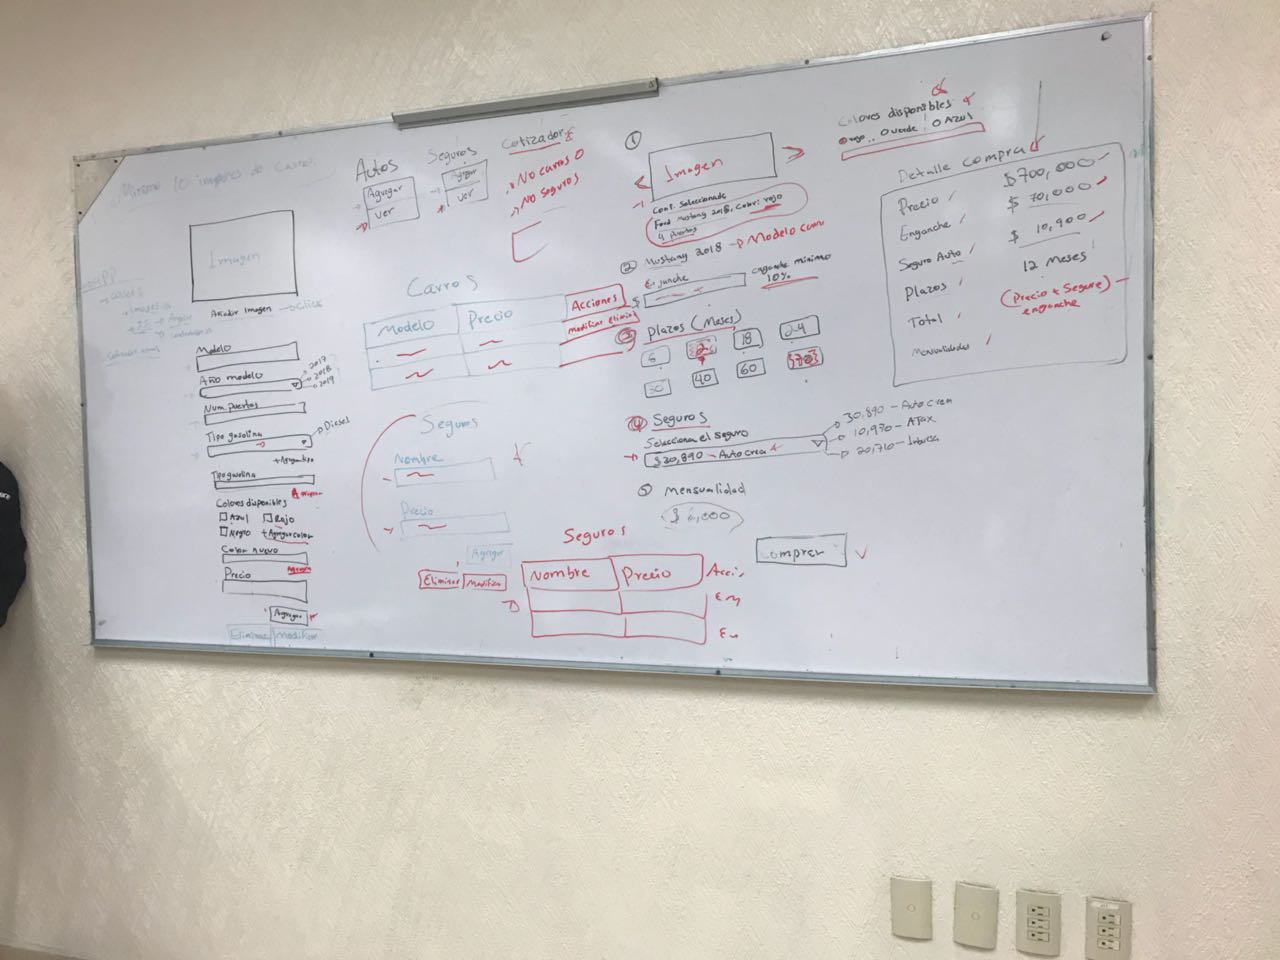 Minimo 10 imagenes de carros
Imagen
Añadir Imagen
click
Modelo
Año modelo
2017
2018
2019
Num puertas
Tipo gasolina
Diesel
Tipo gasolina
Colores disponibles
Azul
Rojo
Negro
+Agregar color
Color nuevo
Precio
Agregar
Eliminar
Modificar
Autos
Agregar
Ver
Seguros
Agregar
Ver
Cotizador
No carros 0
No seguros
Carros
Modelo
Precio
Acciones
Seguros
Nombre
Precio
Agregar
Eliminar
Modificar
Seguros
Nombre
Precio
1
Imagen
Ford Mustang 2018, Color: rojo
4 puertas
2
Mustang 2018
Modelo
$
enganche minimo
10%
3
Plazos (Meses)
18
24
40
60
4
Seguros
Selecciona el seguro
$20,890 - Autocrea
30,890 - Autocrea
10,970 -
20,710 -
5
Mensualidad
Comprar
Colores disponibles
O verde
O Azul
Detalle compra
Precio
$700,000
Enganche
$ 70,000
Seguro Auto
$ 10,900
Plazos
12 Meses
Total
(Precio + Seguro) -
enganche
Mensualidades